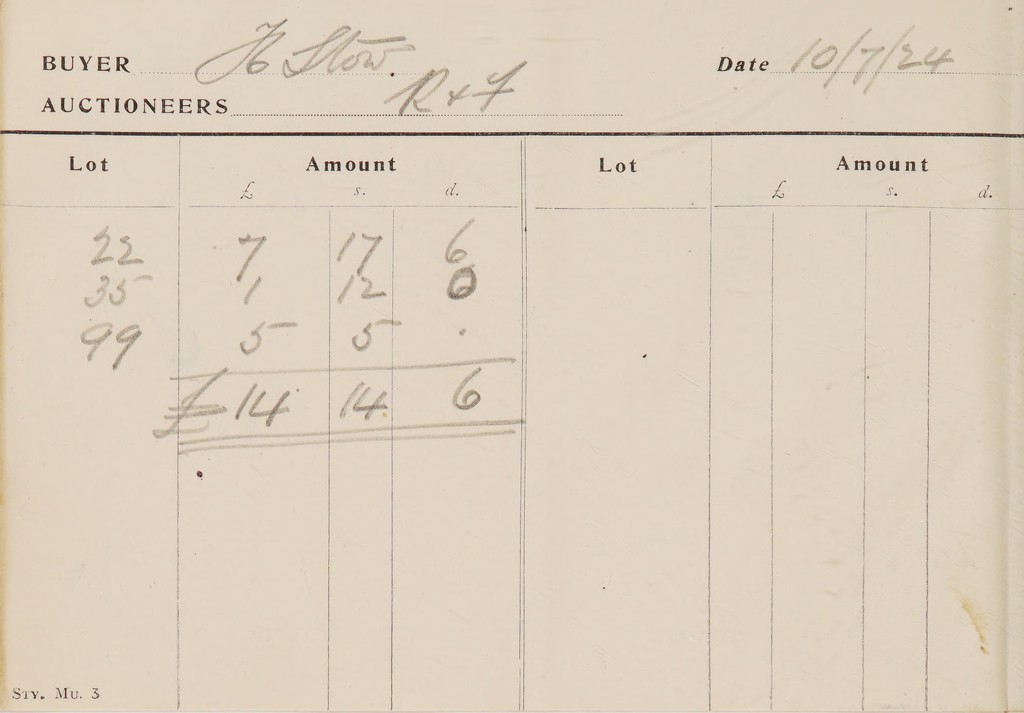 BUYER H Stow.
Date 10/7/24
AUCTIONEERS R & F
Lot Amount Lot Amount
£ s. d. £ s. d.
22 7 17 6
35 1 12 0
99 5 5 .
£ 14 14 6
STY. MU. 3